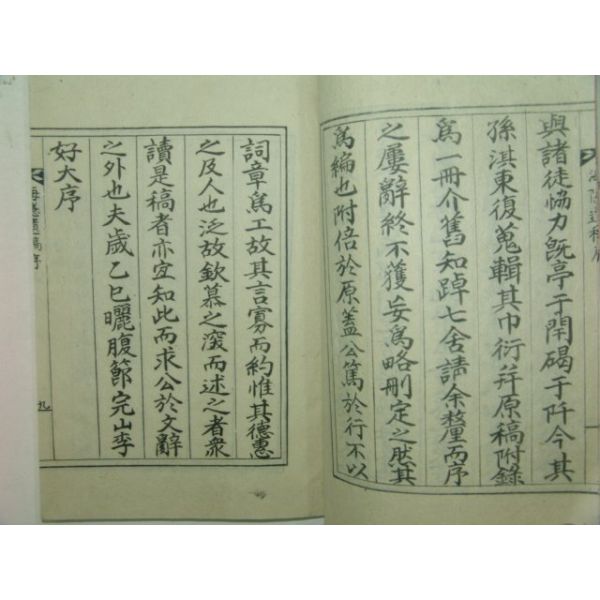 與諸徒恊力旣亭于閈碣于阡今其
孫淇東復蒐輯其巾衍幷原稿附錄
爲一冊介舊知踔七舍請余釐而序
之屢辭終不獲妄爲略刪定之然其
爲編也附倍於原盖公篤於行不以
詞章爲工故其言寡而約惟其德惠
之及人也泛故欽慕之深而述之者衆
讀是稿者亦宜知此而求公於文辭
之外也夫歲乙巳曬腹節完山李
好大序